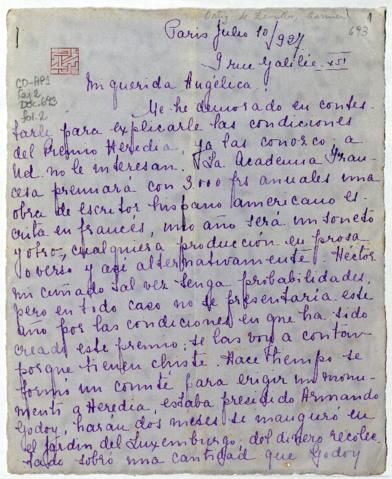 Ortiz de Zevallos, Carmen
1
1
693
Paris Julio 10/927
9 rue Galilée XVI
CO-AP1
Caj. 2
Doc. 693
fol. 2
Mi querida Angélica:
Me he demorado en contes-
tarle para explicarle las condiciones
del Premio Heredia, ya las conosco, a
Ud. no le interesan. La Academia Fran-
cesa premiará con 3.000 frs anuales una
obra de escritor hispano americano es-
crita en francés, un año será un soneto
y otro, cualquiera produccion en prosa
o verso y asi alternativamente. Hector
mi cuñado tal vez tenga probabilidades,
pero en todo caso no se presentaría este
año por las condiciones en que ha sido
creado este premio, se las voy a contar
porque tienen chiste. Hace tiempo se
formó un comité para erigir un monu-
mento a Heredia, estaba presidido Armando
Godoy, haran dos meses se inauguró en
el jardin del Luxemburgo, del dinero recolec-
tado sobró una cantidad que Godoy